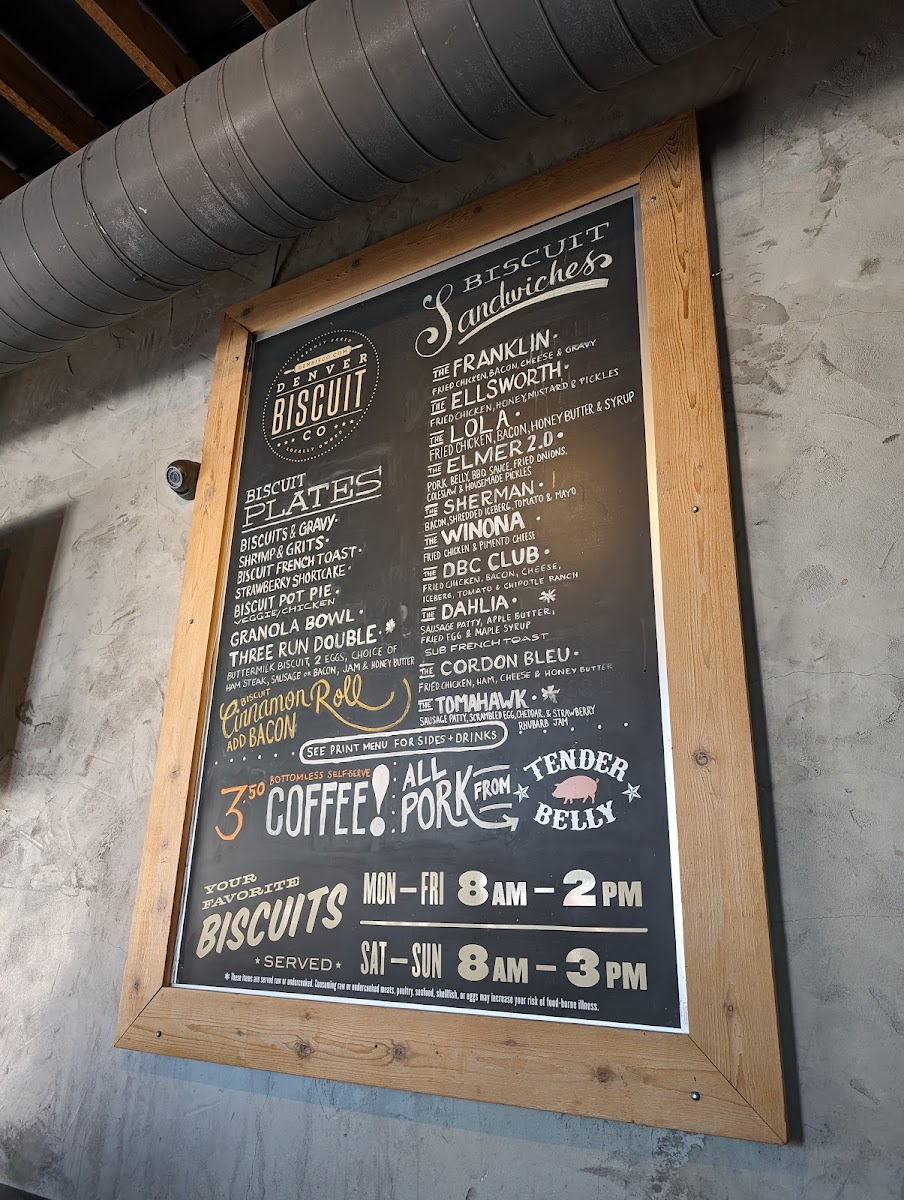 DENBISCO.COM
DENVER
BISCUIT
CO
LOCALLY OWNED
BISCUIT
PLATES
BISCUITS & GRAVY
SHRIMP & GRITS
BISCUIT FRENCH TOAST
STRAWBERRY SHORTCAKE
BISCUIT POT PIE
VEGGIE/CHICKEN
GRANOLA BOWL
THREE RUN DOUBLE *
BUTTERMILK BISCUIT, 2 EGGS, CHOICE OF
HAM STEAK, SAUSAGE OR BACON, JAM & HONEY BUTTER
BISCUIT
Cinnamon Roll
ADD BACON
BISCUIT
Sandwiches
THE FRANKLIN
FRIED CHICKEN, BACON, CHEESE & GRAVY
THE ELLSWORTH
FRIED CHICKEN, HONEY, MUSTARD & PICKLES
THE LOLA
FRIED CHICKEN, BACON, HONEY BUTTER & SYRUP
THE ELMER 2.0
PORK BELLY, BBQ SAUCE, FRIED ONIONS,
COLESLAW & HOUSEMADE PICKLES
THE SHERMAN
BACON, SHREDDED ICEBERG, TOMATO & MAYO
THE WINONA
FRIED CHICKEN & PIMENTO CHEESE
THE DBC CLUB
FRIED CHICKEN, BACON, CHEESE,
ICEBERG, TOMATO & CHIPOTLE RANCH
THE DAHLIA *
SAUSAGE PATTY, APPLE BUTTER,
FRIED EGG & MAPLE SYRUP
SUB FRENCH TOAST
THE CORDON BLEU
FRIED CHICKEN, HAM, CHEESE & HONEY BUTTER
THE TOMAHAWK *
SAUSAGE PATTY, SCRAMBLED EGG, CHEDDAR, & STRAWBERRY
RHUBARB JAM
SEE PRINT MENU FOR SIDES + DRINKS
3.50 BOTTOMLESS SELF-SERVE
COFFEE!
ALL
PORK FROM
TENDER
BELLY
YOUR
FAVORITE
BISCUITS
SERVED
MON – FRI 8 AM – 2 PM
SAT – SUN 8 AM – 3 PM
* These items are served raw or undercooked. Consuming raw or undercooked meats, poultry, seafood, shellfish, or eggs may increase your risk of food-borne illness.